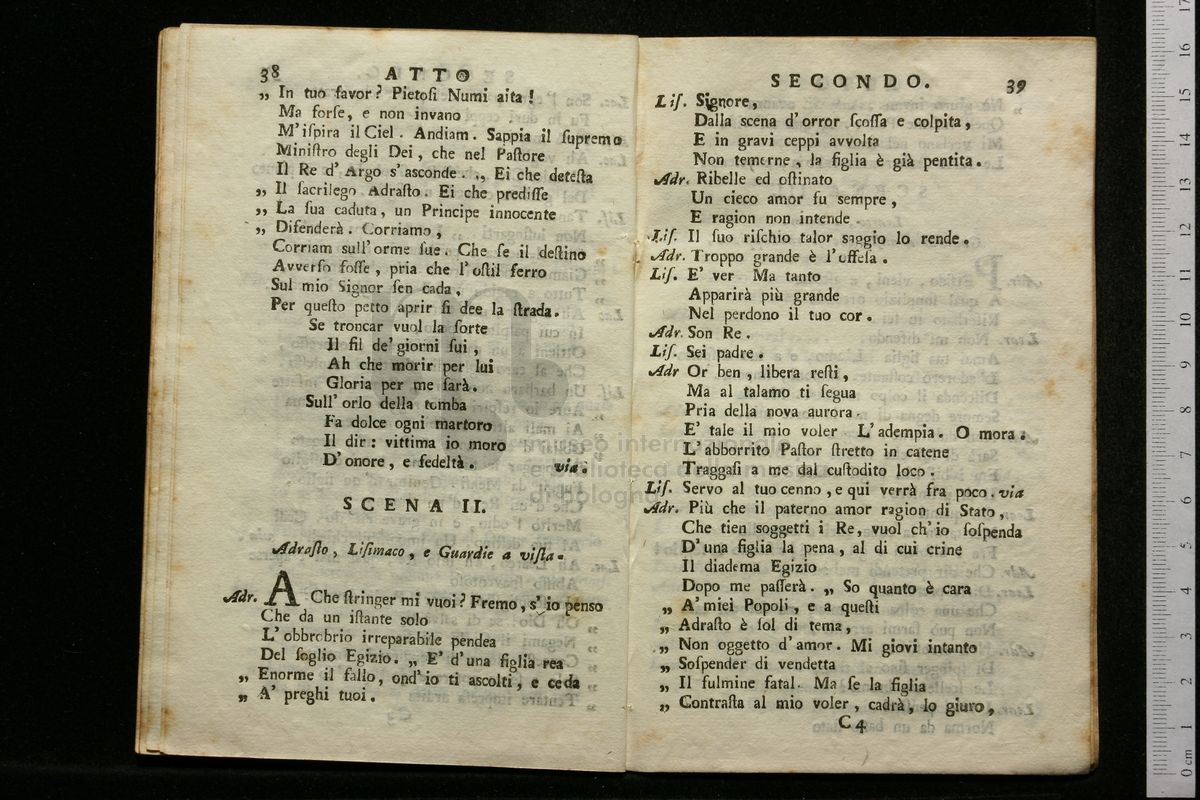 38 ATTO
„ In tuo favor? Pietoſi Numi aita!
Ma forſe, e non invano
M'iſpira il Ciel. Andiam. Sappia il ſupremo
Miniſtro degli Dei, che nel Paſtore
Il Re d'Argo s'asconde. ., Ei che deteſta
„ Il ſacrilego Adraſto. Ei che prediſſe
„ La ſua caduta, un Principe innocente
„ Difenderà. Corriamo,
Corriam sull'orme ſue. Che ſe il deſtino
Avverſo foſſe, pria che l'oſtil ferro
Sul mio Signor ſen cada,
Per queſto petto aprir ſi dee la ſtrada.
Se troncar vuol la ſorte
Il fil de' giorni ſui,
Ah che morir per lui
Gloria per me ſarà.
Sull'orlo della tomba
Fa dolce ogni martoro
Il dir: vittima io moro
D'onore, e fedeltà. via.
SCENA II.
Adraſto, Liſimaco, e Guardie a viſta.
Adr. A Che ſtringer mi vuoi? Fremo, s'io penso
Che da un iſtante solo
L'obbrobrio irreparabile pendea
Del ſoglio Egizio. „ E' d'una figlia rea
„ Enorme il fallo, ond'io ti ascolti, e ceda
„ A' preghi tuoi.
SECONDO. 39
Liſ. Signore,
Dalla scena d'orror ſcoſſa e colpita,
E in gravi ceppi avvolta
Non temerne, la figlia è già pentita.
Adr. Ribelle ed oſtinato
Un cieco amor fu sempre,
E ragion non intende.
Liſ. Il ſuo riſchio talor saggio lo rende.
Adr. Troppo grande è l'offeſa.
Liſ. E' ver Ma tanto
Apparirà più grande
Nel perdono il tuo cor.
Adr. Son Re.
Liſ. Sei padre.
Adr Or ben, libera reſti,
Ma al talamo ti ſegua
Pria della nova aurora.
E' tale il mio voler L'adempia. O mora.
L'abborrito Paſtor ſtretto in catene
Traggaſi a me dal cuſtodito loco.
Liſ. Servo al tuo cenno, e qui verrà fra poco. via
Adr. Più che il paterno amor ragion di Stato,
Che tien soggetti i Re, vuol ch'io ſoſpenda
D'una figlia la pena, al di cui crine
Il diadema Egizio
Dopo me paſſerà. „ So quanto è cara
„ A' miei Popoli, e a queſti
„ Adraſto è ſol di tema,
„ Non oggetto d'amor. Mi giovi intanto
„ Soſpender di vendetta
„ Il fulmine fatal. Ma ſe la figlia
„ Contraſta al mio voler, cadrà, lo giuro,
C 4
museo internazionale
e biblioteca della musica
di bologna